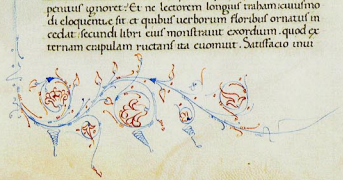 penitus ignoret: Et ne lectorem longius traham: cuiusmo
di eloquentiae sit et quibus uerborum floribus ornatus in
cedat: secundi libri eius monstrauit exordium. quod ex
ternam crapulam ructans ita euomuit. Satisfacio inui